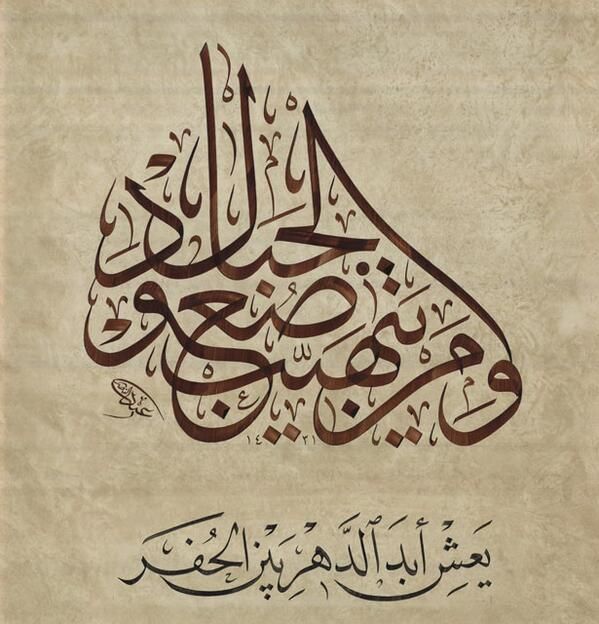 ومن يتهيّب صُعود الجبال
يَعِشْ أبدَ ٱلدَّهْرِ بَيْنَ الحُفَر
١٤٣١